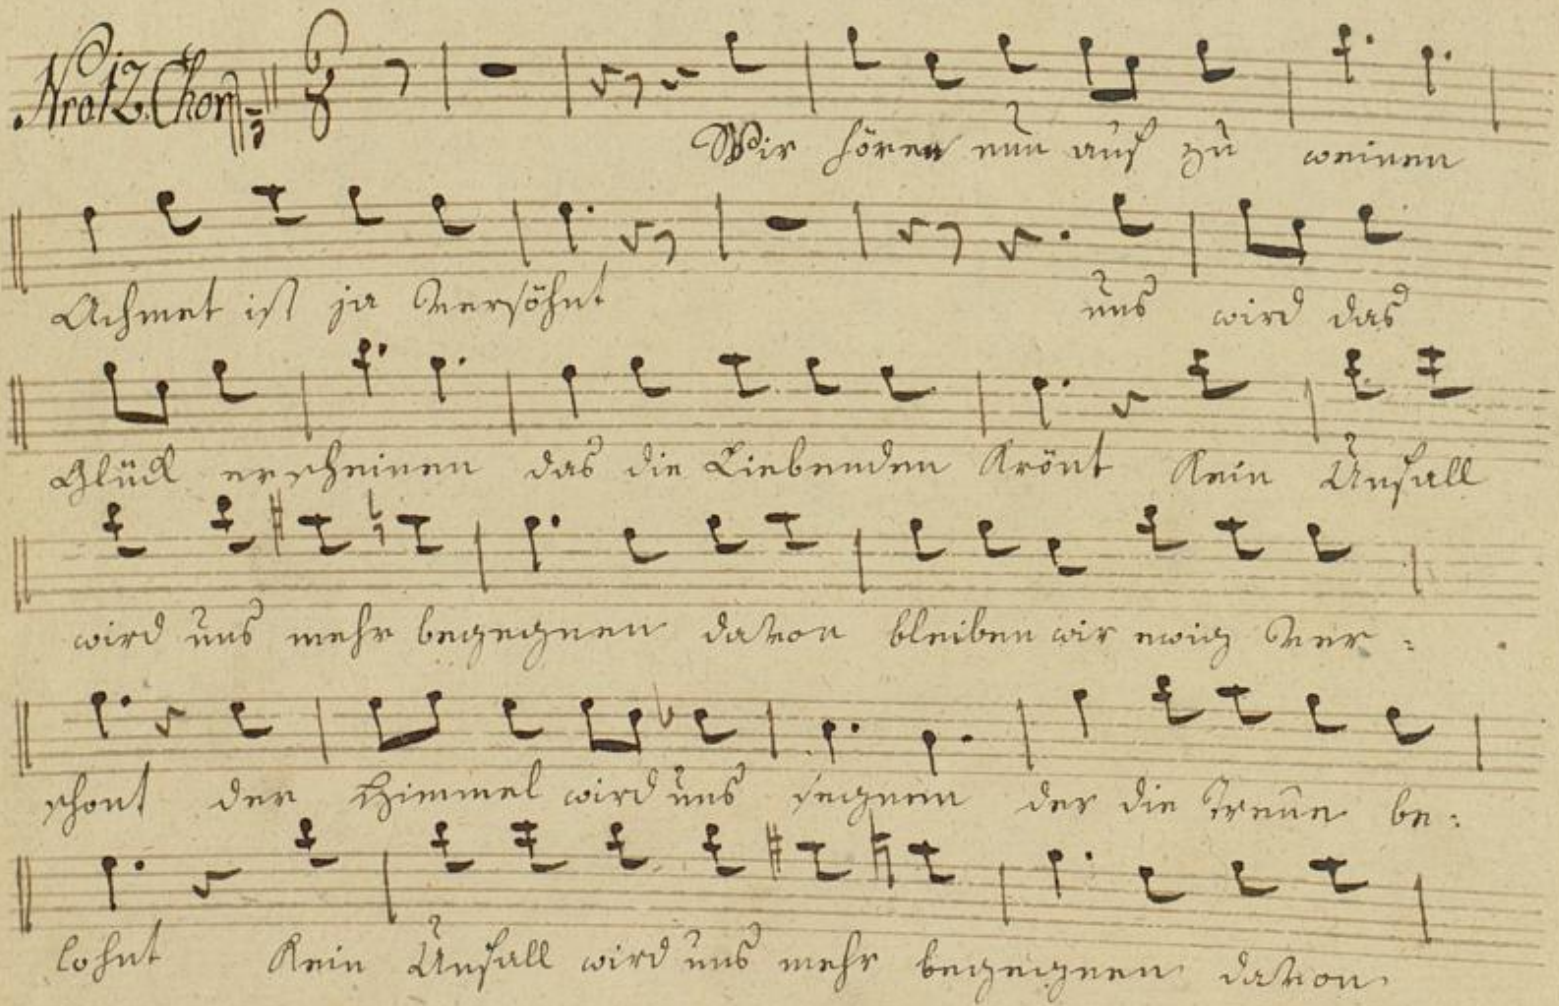 Nro 12. Chor
Wir hören nun auf zu weinen
Achmet ist ja versöhnt uns wird das
Glück erscheinen das die Liebenden krönt Kein Unfall
wird uns mehr begegnen davon bleiben wir ewig ver=
schont der Himmel wird uns segnen der die Treue be=
lohnt Kein Unfall wird uns mehr begegnen davon